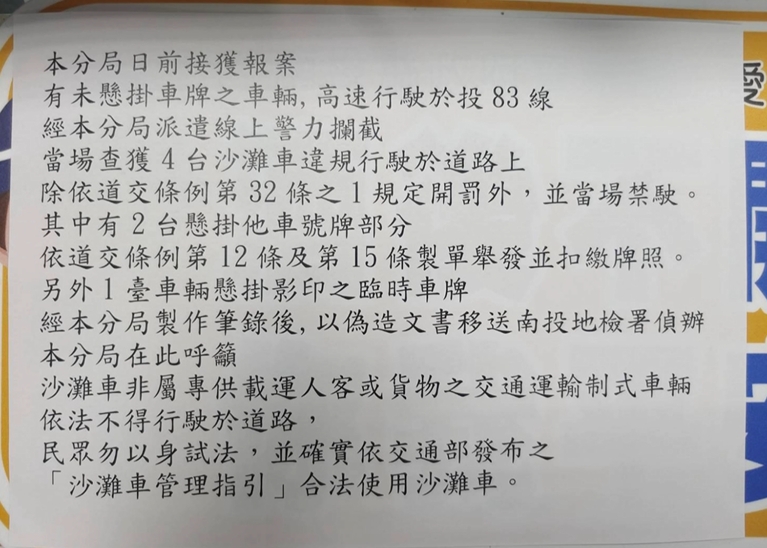 本分局日前接獲報案
有未懸掛車牌之車輛, 高速行駛於投 83 線
經本分局派遣線上警力攔截
當場查獲 4 台沙灘車違規行駛於道路上
除依道交條例第 32 條之 1 規定開罰外，並當場禁駛。
其中有 2 台懸掛他車號牌部分
依道交條例第 12 條及第 15 條製單舉發並扣繳牌照。
另外 1 臺車輛懸掛影印之臨時車牌
經本分局製作筆錄後, 以偽造文書移送南投地檢署偵辦
本分局在此呼籲
沙灘車非屬專供載運人客或貨物之交通運輸制式車輛
依法不得行駛於道路，
民眾勿以身試法，並確實依交通部發布之
「沙灘車管理指引」合法使用沙灘車。
愛